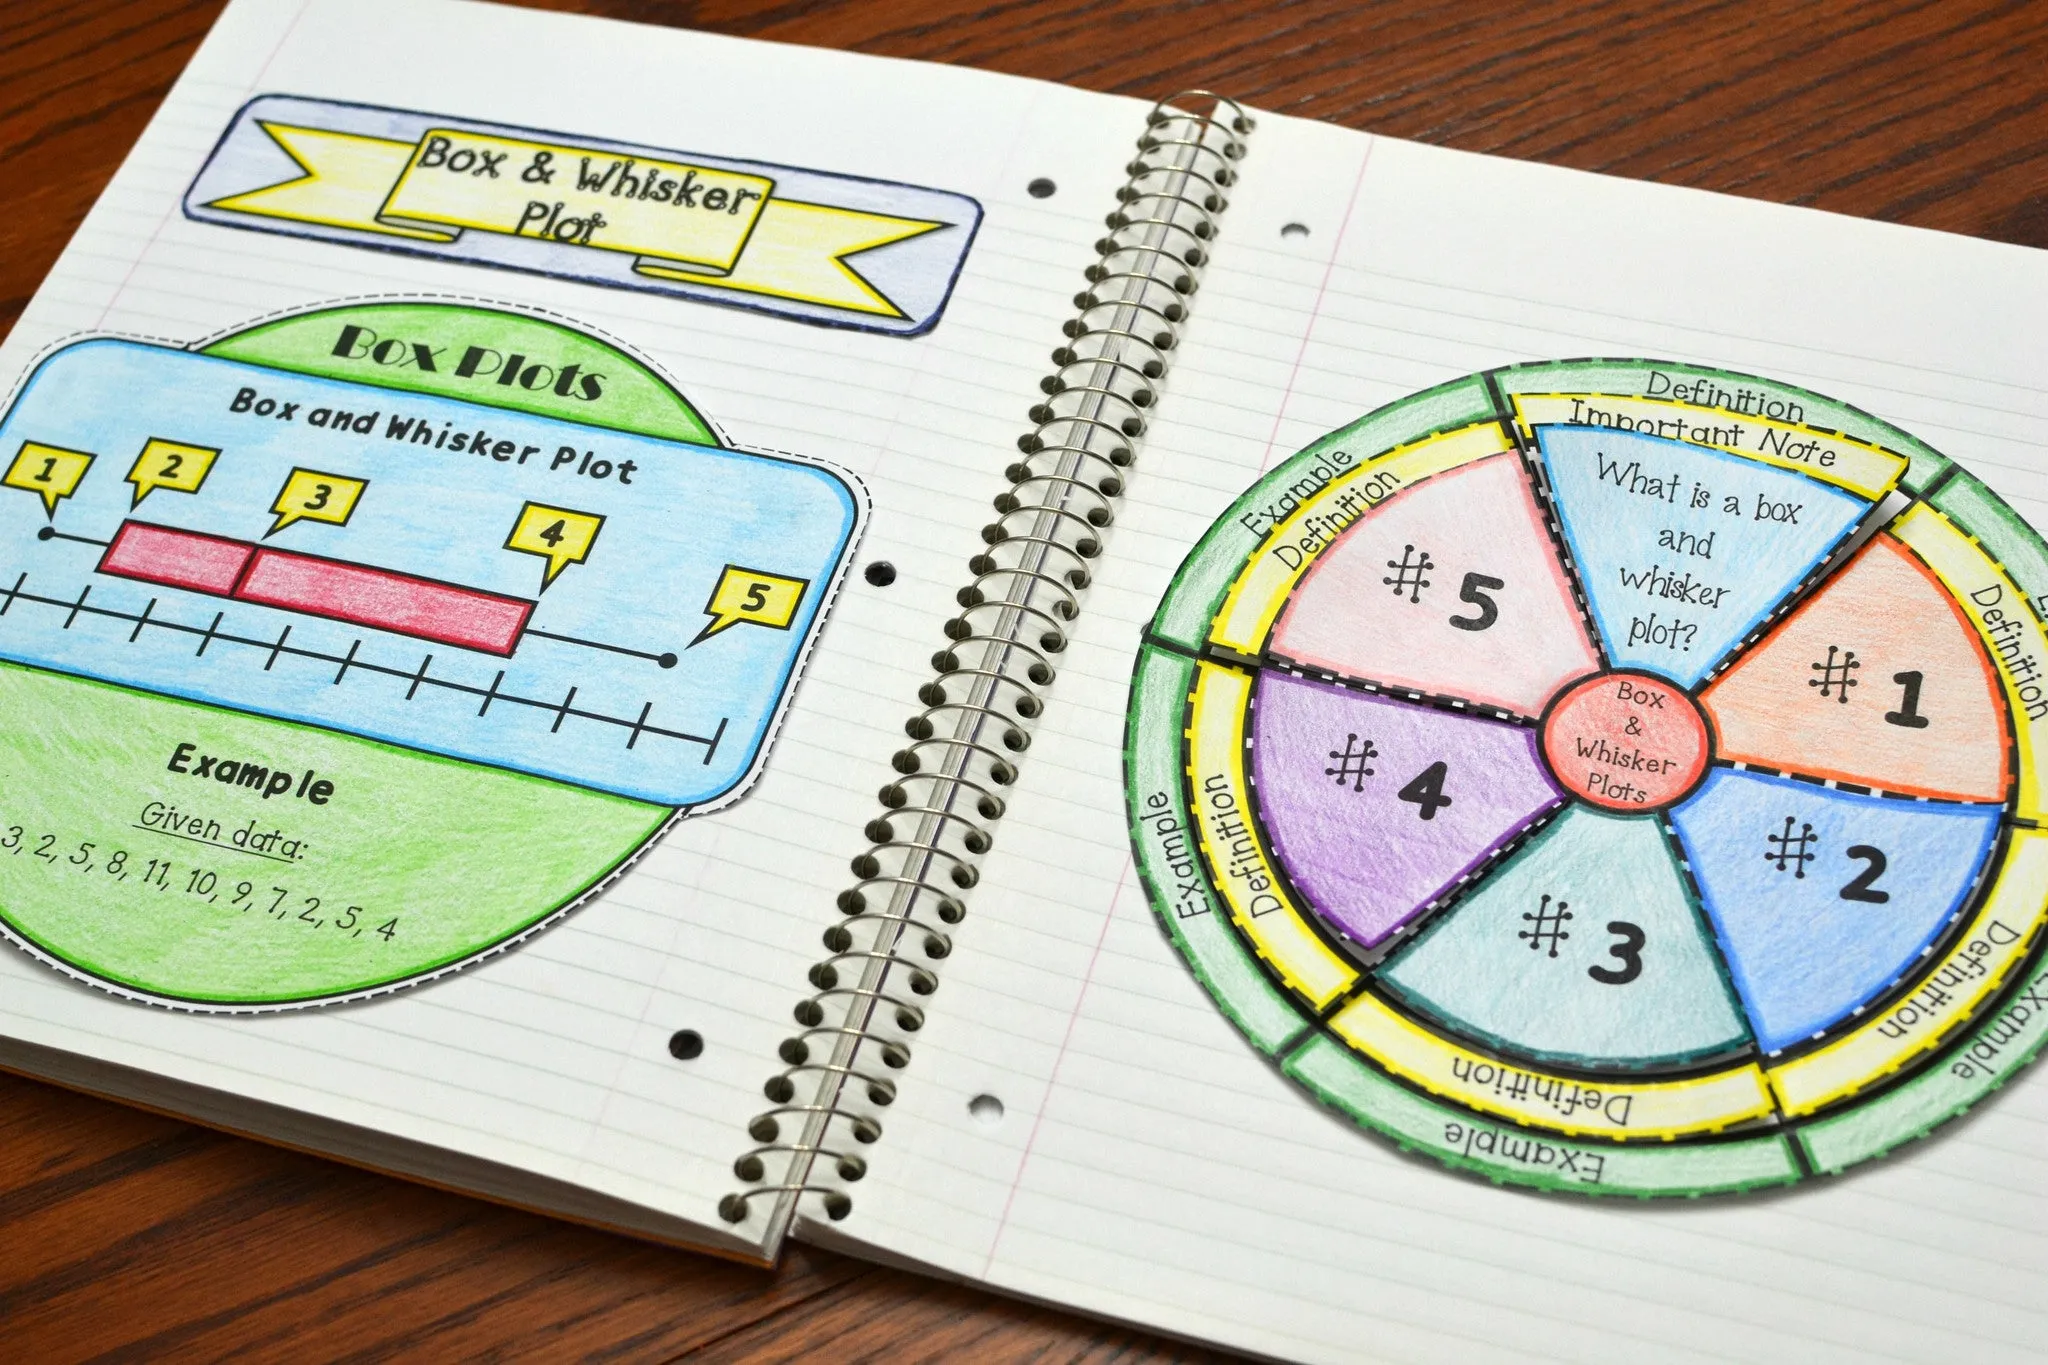 Box & Whisker
Plot
Box Plots
Box and Whisker Plot
1
2
3
4
5
Example
Given data:
3, 2, 5, 8, 11, 10, 9, 7, 2, 5, 4
Definition
Important Note
What is a box
and
whisker
plot?
Definition
# 1
Example
Definition
# 2
Example
Definition
# 3
Example
Definition
# 4
Example
Definition
# 5
Box
&
Whisker
Plots